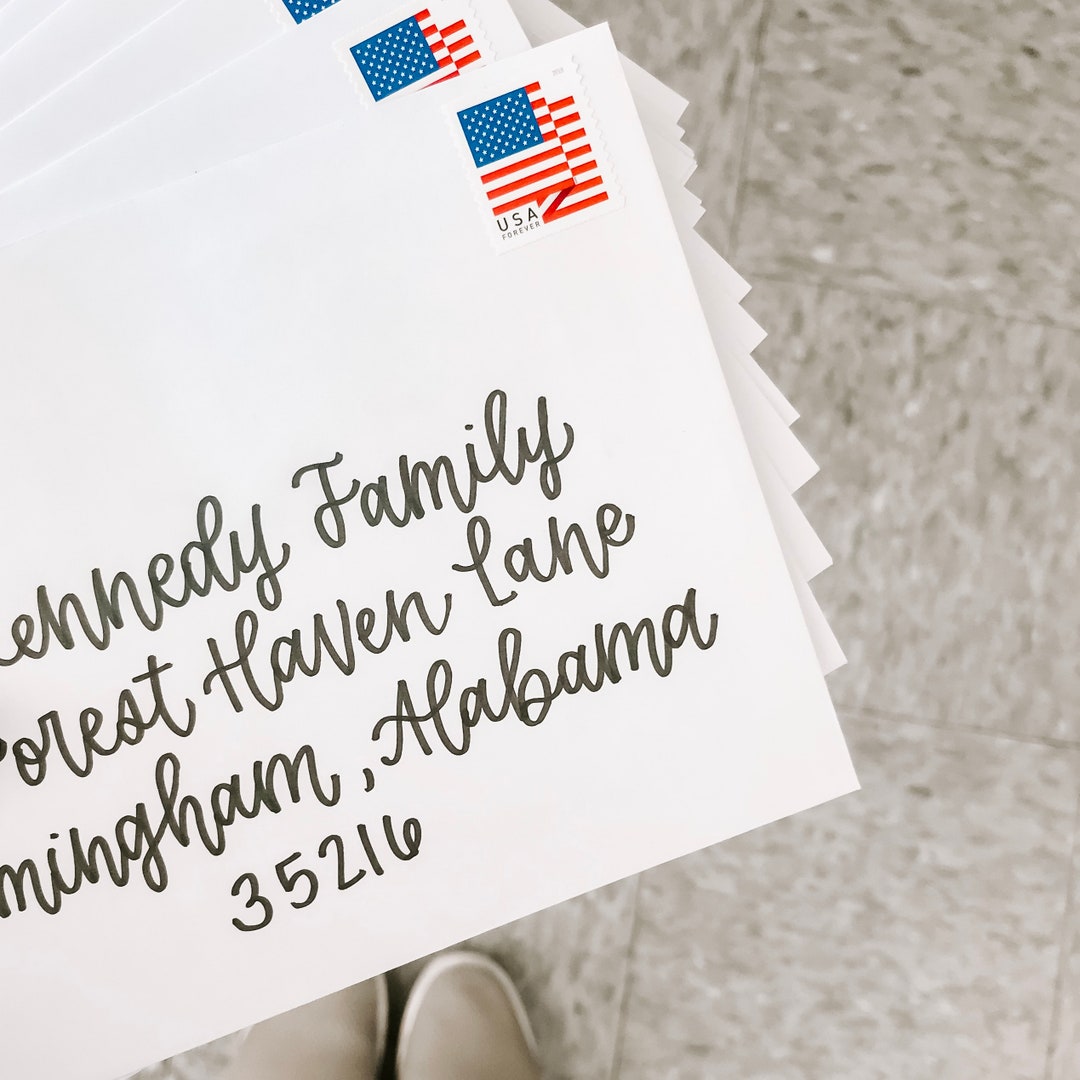 USA
FOREVER
ennedy Family
orest Haven Lane
mingham, Alabama
35216